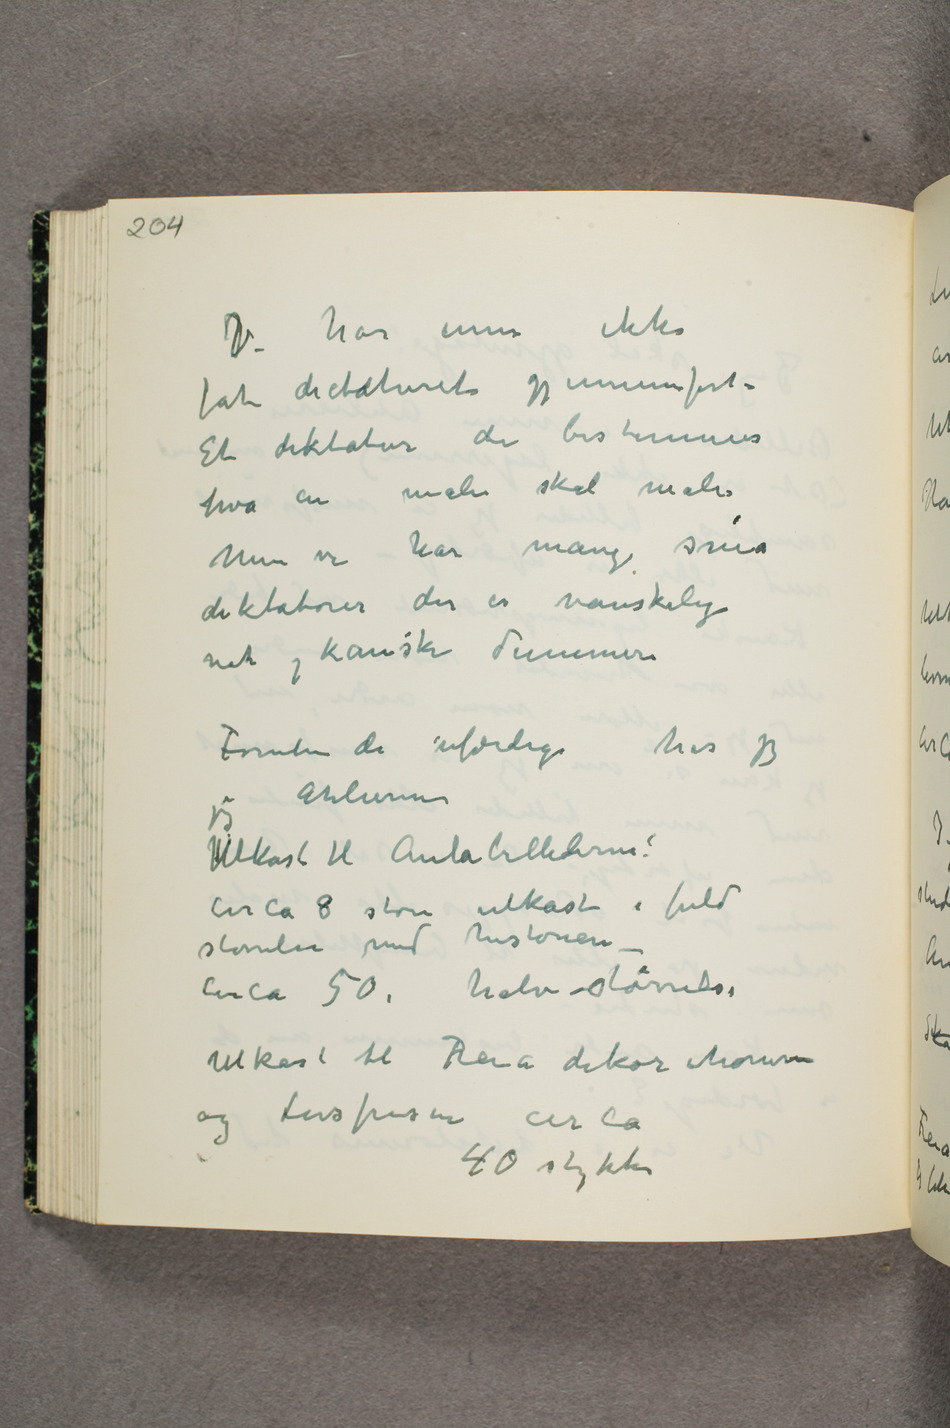 204
Vi har ennu ikke
fåt dictaturets gjennemført –
Et diktatur der bestemmes
hva en maler skal male
Men vi har mange små
diktatorer der er vanskelig
nok og kanske dummere
Foruten de uferdige har jeg
Atelierne
Utkast til Aulabillederne:
Circa 8 store utkast i fuld
størrelse med historien –
Circa 50 i halv størrelse
Utkast til Freia dekorationen
og Livsfrisen circa
40 stykker